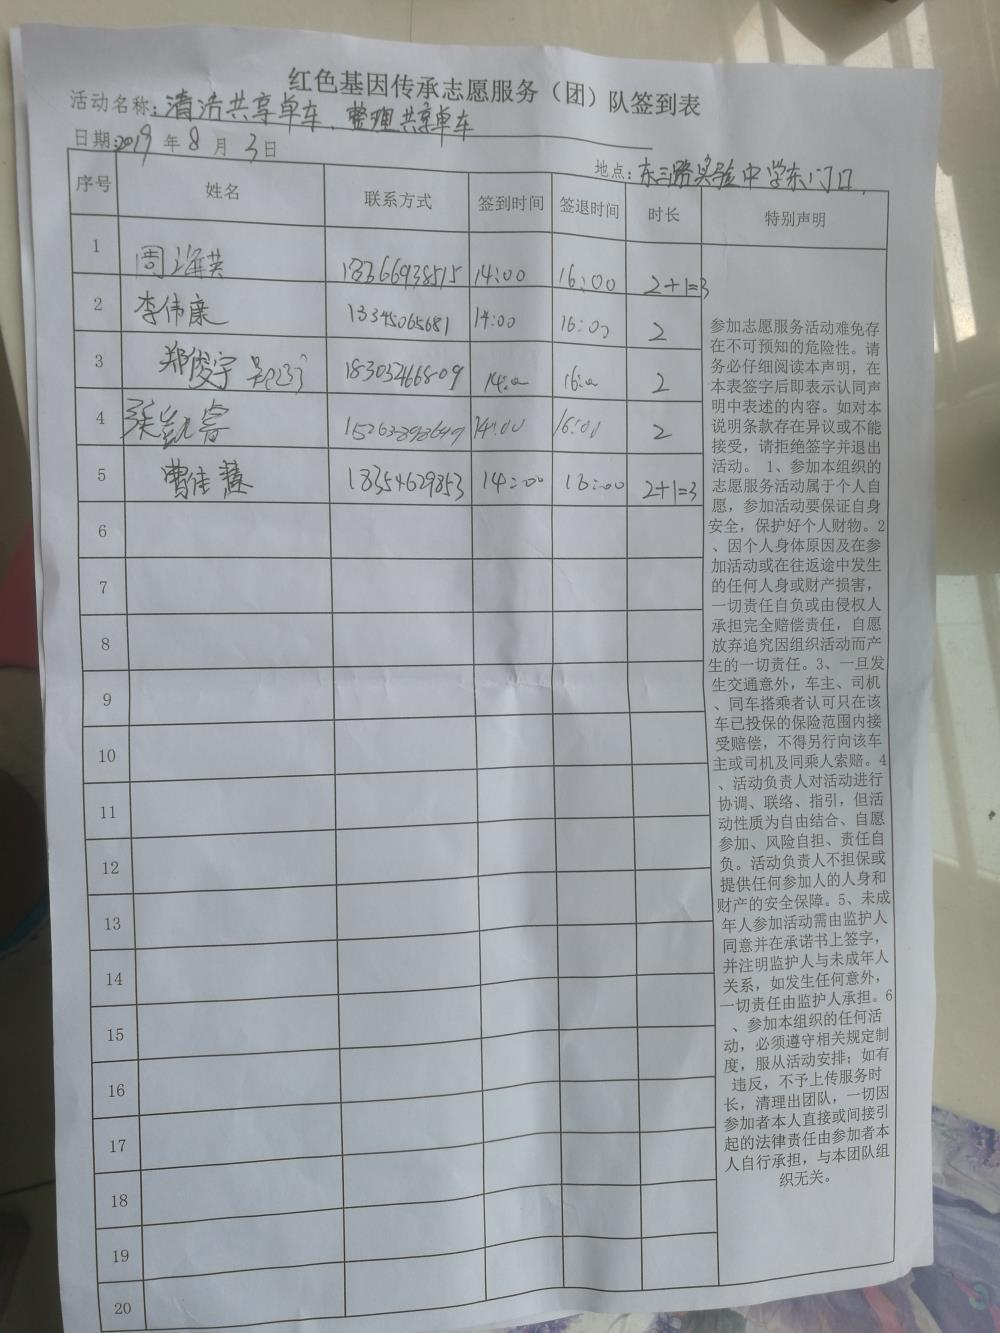 红色基因传承志愿服务（团）队签到表
活动名称：清洁共享单车、整理共享单车
日期：2019 年 8 月 3 日
地点：东三路实验中学东门口
序号 姓名 联系方式 签到时间 签退时间 时长 特别声明
1 周海英 18366938515 14:00 16:00 2+1=3
2 李伟康 13345065681 14:00 16:00 2
3 郑俊宇 18305466809 14:00 16:00 2
4 张凯睿 14:00 16:00 2
5 曹佳慧 18354629853 14:00 16:00 2+1=3
6
7
8
9
10
11
12
13
14
15
16
17
18
19
20
参加志愿服务活动难免存
在不可预知的危险性。请
务必仔细阅读本声明，在
本表签字后即表示认同声
明中表述的内容。如对本
说明条款存在异议或不能
接受，请拒绝签字并退出
活动。 1、参加本组织的
志愿服务活动属于个人自
愿，参加活动要保证自身
安全，保护好个人财物。2
、因个人身体原因及在参
加活动或在往返途中发生
的任何人身或财产损害，
一切责任自负或由侵权人
承担完全赔偿责任，自愿
放弃追究因组织活动而产
生的一切责任。3、一旦发
生交通意外，车主、司机
、同车搭乘者认可只在该
车已投保的保险范围内接
受赔偿，不得另行向该车
主或司机及同乘人索赔。4
、活动负责人对活动进行
协调、联络、指引，但活
动性质为自由结合、自愿
参加、风险自担、责任自
负。活动负责人不担保或
提供任何参加人的人身和
财产的安全保障。5、未成
年人参加活动需由监护人
同意并在承诺书上签字，
并注明监护人与未成年人
关系，如发生任何意外，
一切责任由监护人承担。6
、参加本组织的任何活
动，必须遵守相关规定制
度，服从活动安排；如有
违反，不予上传服务时
长，清理出团队，一切因
参加者本人直接或间接引
起的法律责任由参加者本
人自行承担，与本团队组
织无关。